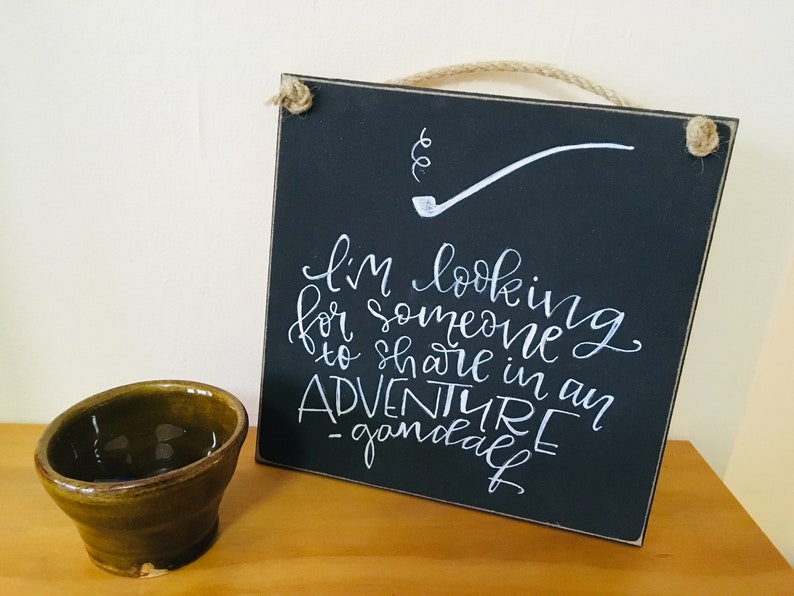 I'm looking
for someone
to share in an
ADVENTURE
- gandalf